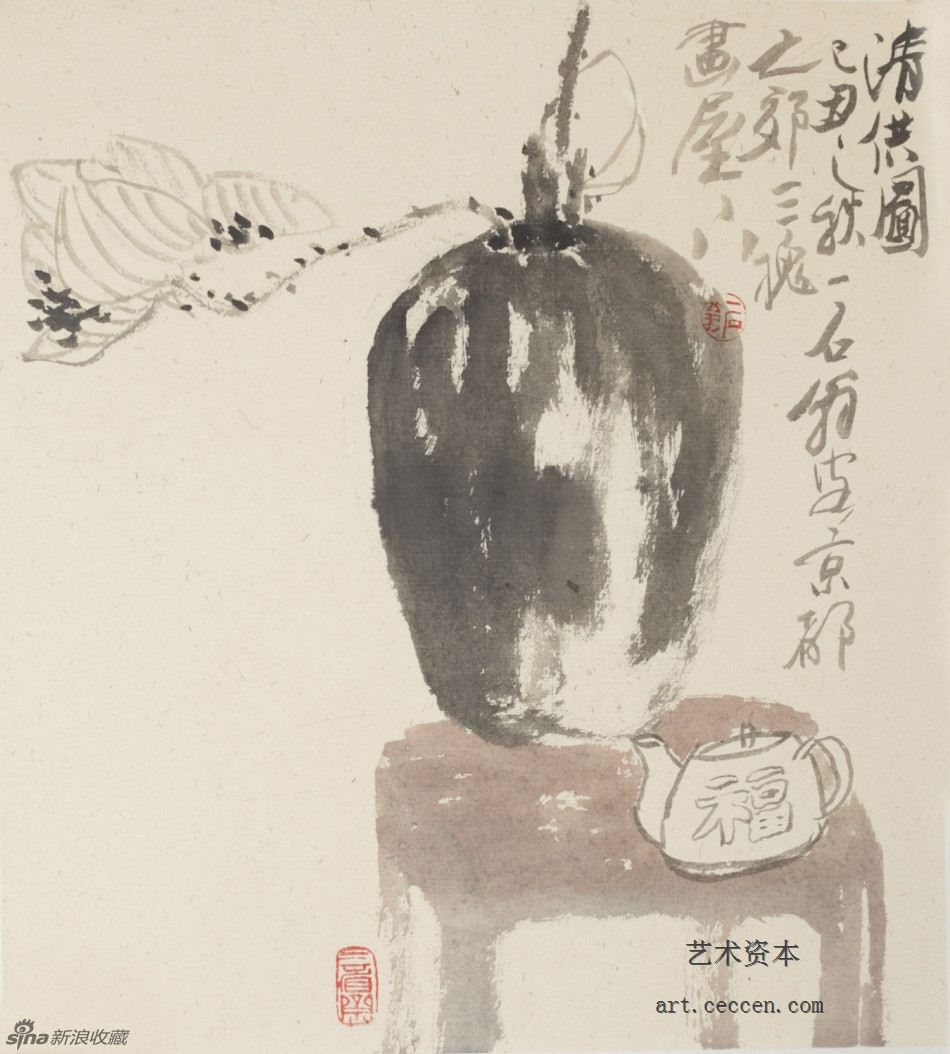 清供圖
己丑之秋一石翁京都
之郊三槐
畫屋
福
艺术资本
art.ceccen.com
sina新浪收藏